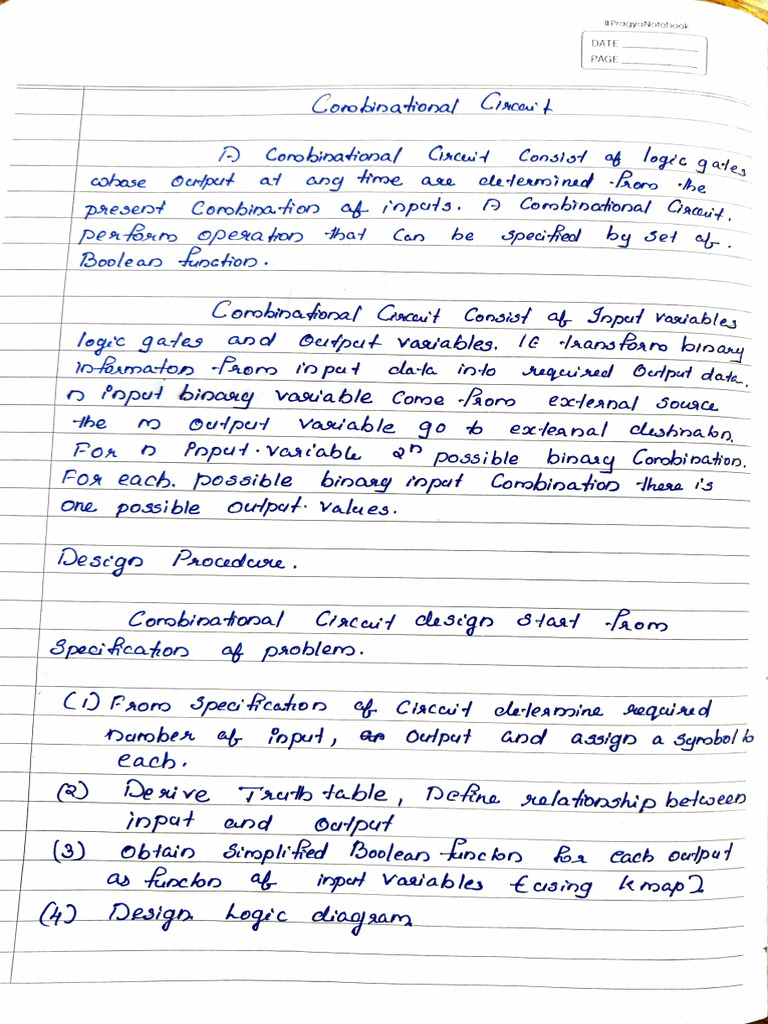 #PragyaNotebook
DATE
PAGE
Combinational Circuit
A Combinational Circuit Consist of logic gates
whose output at any time are determined from the
present Combination of inputs. A Combinational Circuit.
perform operation that can be specified by set of.
Boolean function.
Combinational Circuit Consist of Input variables
logic gates and output variables. It transform binary
informaton from input data into required output data.
n input binary variable come from external source
the m output variable go to external destinaton.
For n input variable 2ⁿ possible binary Combination.
For each. possible binary input Combination there is
one possible output values.
Design Procedure.
Combinational Circuit design start from
specification of problem.
(1) From specification of circuit determine required
number of input, output and assign a symbol to
each.
(2) Derive Truth table, Define relationship between
input and output
(3) Obtain simplified Boolean functon for each output
as functon of input variables {using kmap}
(4) Design Logic diagram